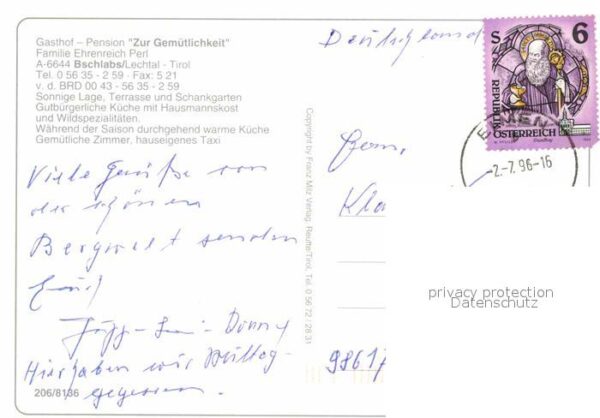 Gasthof – Pension "Zur Gemütlichkeit"
Familie Ehrenreich Perl
A-6644 Bschlabs/Lechtal - Tirol
Tel. 0 56 35 - 2 59 · Fax: 5 21
v. d. BRD 00 43 - 56 35 - 2 59
Sonnige Lage, Terrasse und Schankgarten
Gutbürgerliche Küche mit Hausmannskost
und Wildspezialitäten.
Während der Saison durchgehend warme Küche
Gemütliche Zimmer, hauseigenes Taxi
Viele Grüße von
der schönen
Bergwelt senden
Euch
Conny
Hier haben wir Mittag-
gegessen.
206/8136
Copyright by Franz Milz Verlag, Reutte/Tirol, Tel. 0 56 72 / 28 31
Deutschland
S 6
REPUBLIK
ÖSTERREICH
2.-7. 96-16
Fam.
Kla
9861
privacy protection
Datenschutz